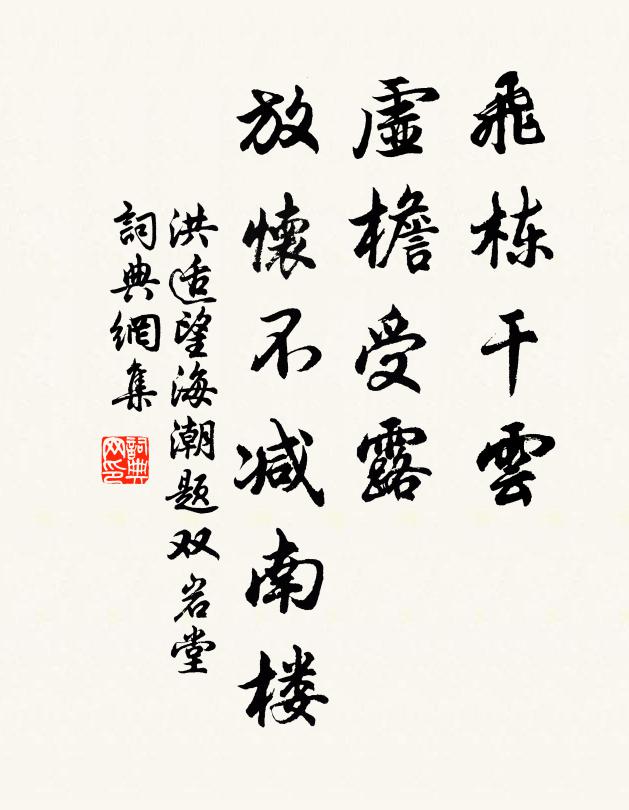 飛栋干雲
虚檐受露
放懷不减南楼
洪适望海潮題双岩堂
詞典網集
詞典网印